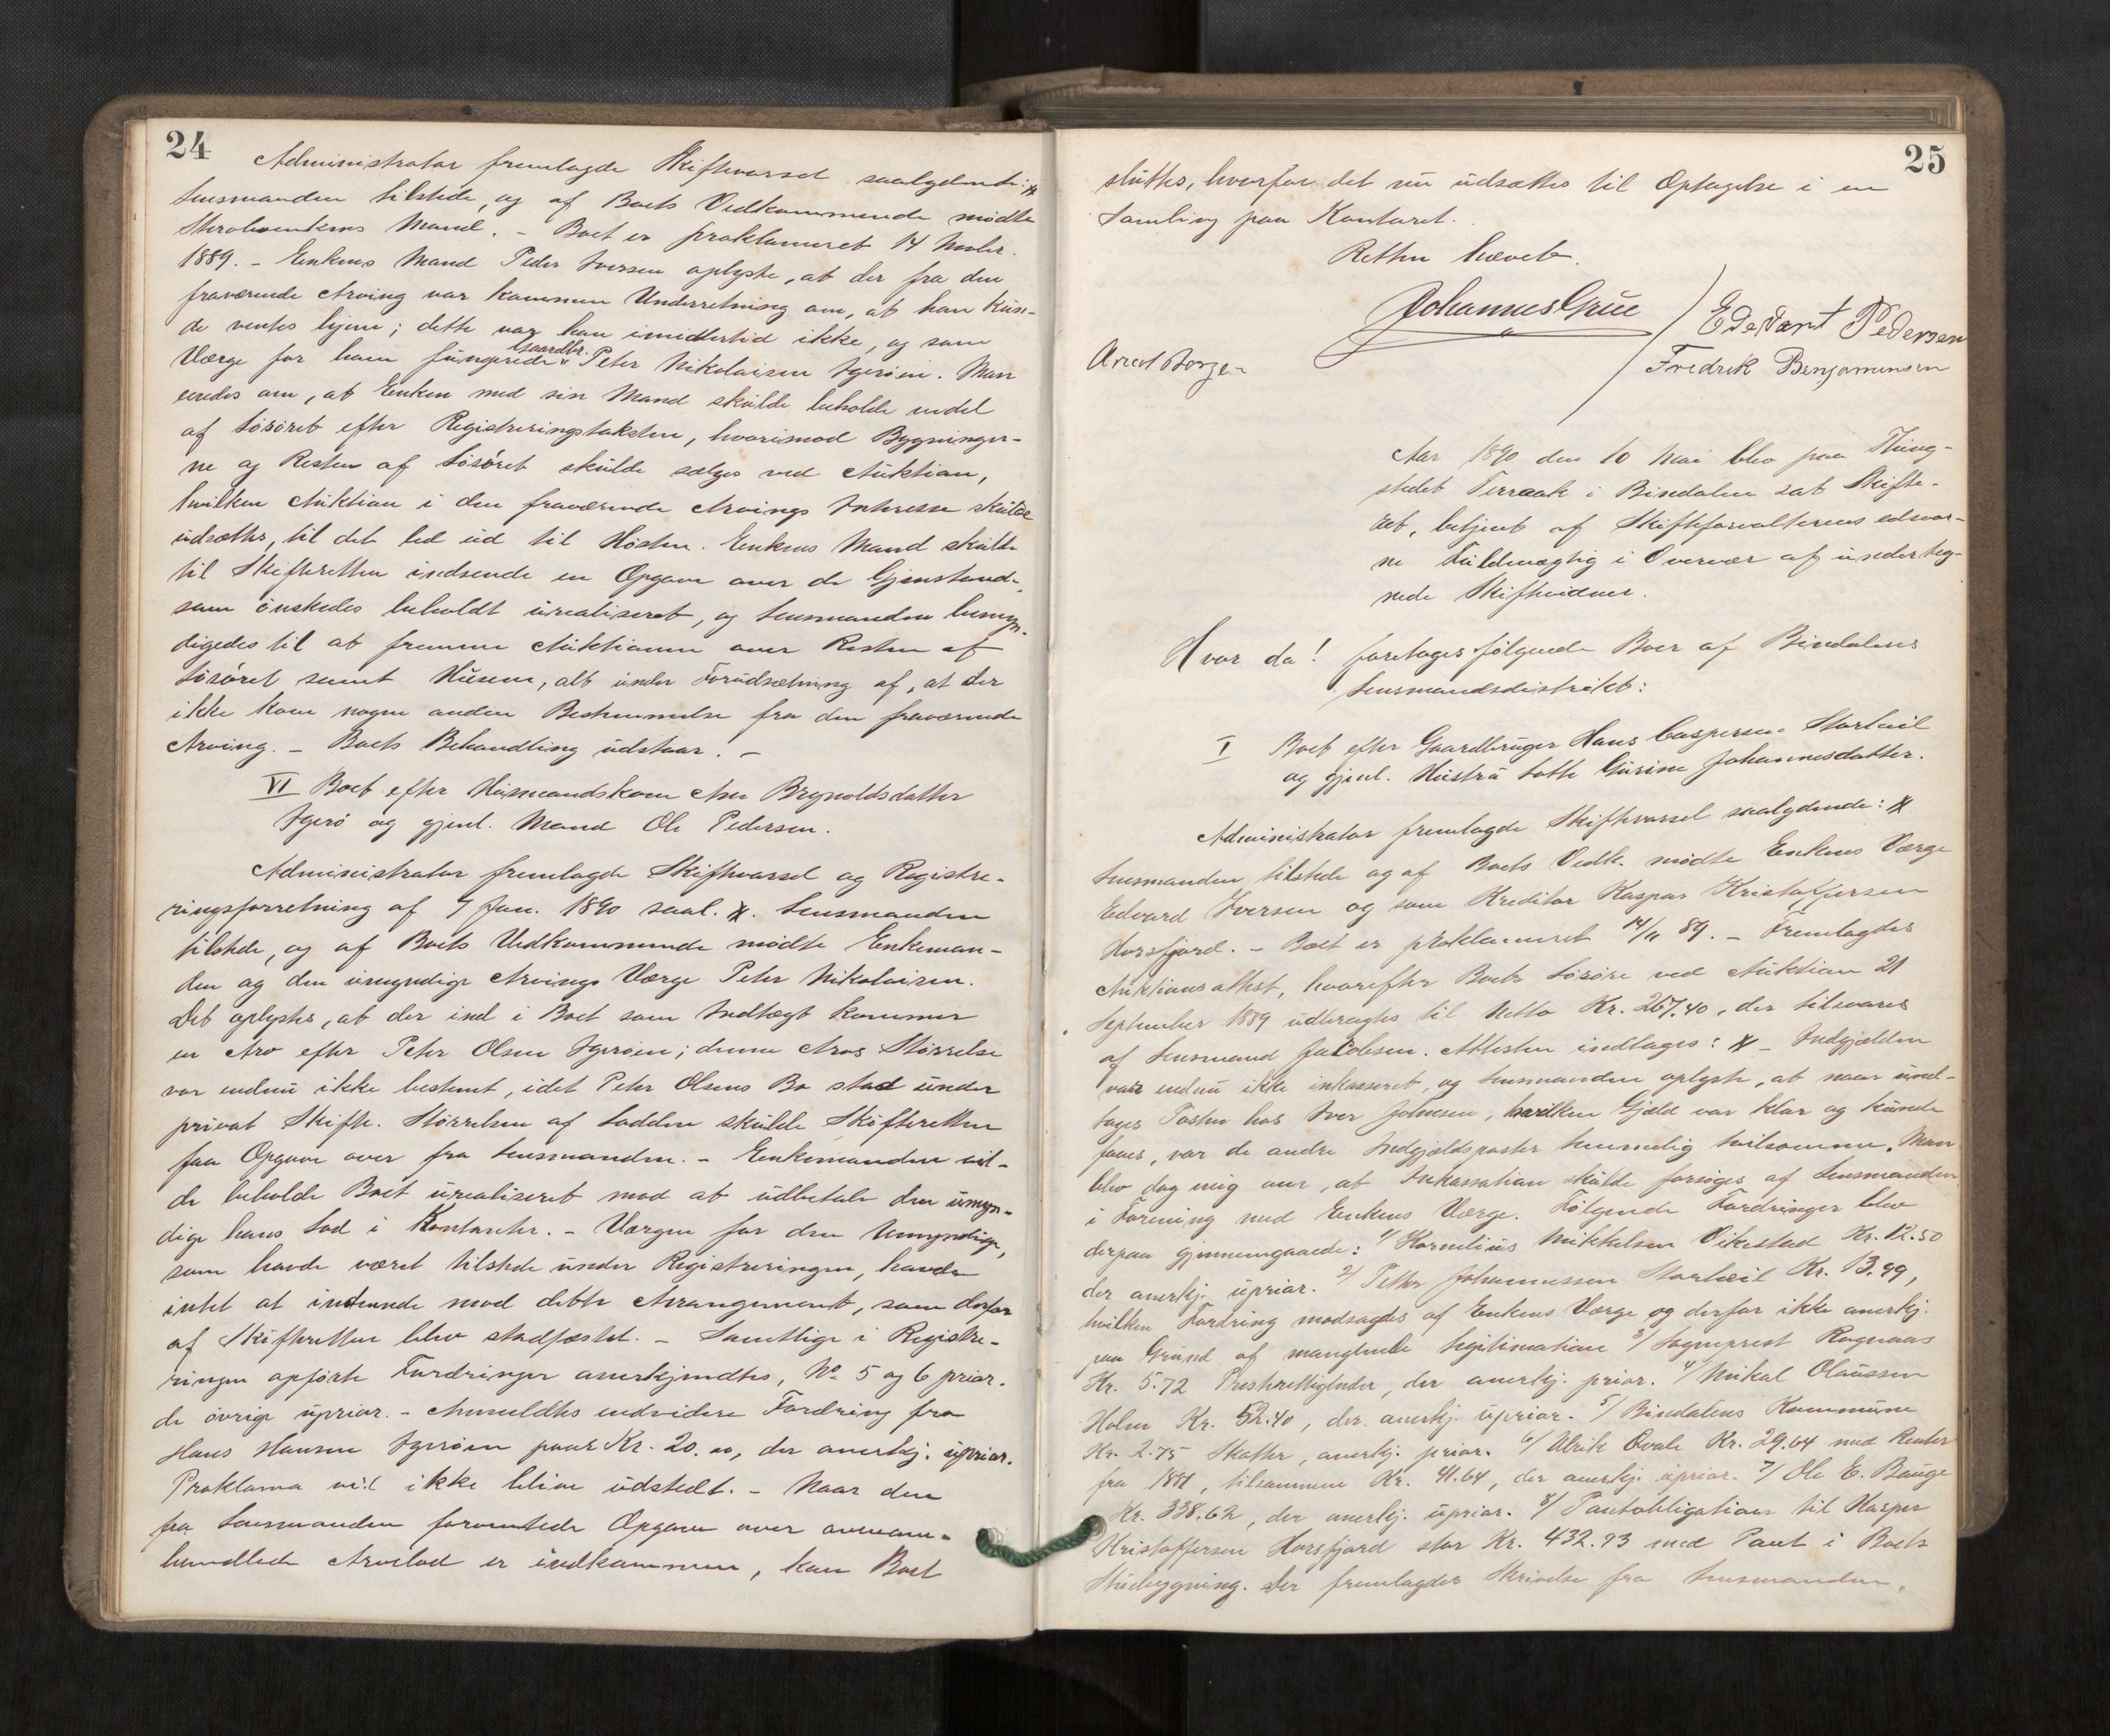 24
Administrator fremlagde Skiftevarsel saalydende: ꝟ
Lensmanden tilstede, og af Boets Vedkommende mødte
Sterboenkens Mand. - Boet er proklameret 14 Novbr.
1889. - Enkens Mand Peder Iversen oplyste, at der fra den
fraværende Arving var kommen Underretning om, at han kun-
de ventes hjem; dette var han imidlertid ikke, og som
Gaardbr.
Værge for ham fungerede Peter Nikolaisen Igerøen. Man
enedes om, at Enken med sin Mand skulde beholde endel
af Løsøret efter Registreringstaksten, hvorimod Bygninger-
ne og Resten af Løsøret skulde sælges ved Auktion,
hvilken Auktion i den fraværende Arvings Interesse skulde
udsættes, til det led ud til Høsten. Enkens Mand skulde
til Skifteretten indsende en Opgave over de Gjenstande,
som ønskedes beholdt urealiseret, og Lensmanden bemyn-
digedes til at fremme Auktionen over Resten af
Løsøret samt Husene, alt under Forudsætning af, at der
ikke kom nogen anden Bestemmelse fra den fraværende
Arving. - Boets Behandling udstaar. -
VI Boet efter Husmandskone Ane Brynoldsdatter
Igerø og gjenl. Mand Ole Pedersen.
Administrator fremlagde Skiftevarsel og Registre-
ringsforretning af 7 Jan. 1890 saal. ꝟ. Lensmanden
tilstede, og af Boets Vedkommende mødte Enkeman-
den og den umyndige Arvings Værge Peter Nikolaisen.
Det oplystes, at der ind i Boet som Indtægt kommer
en Arv efter Peter Olsen Igerøen; denne Arvs Størrelse
var endnu ikke bestemt, idet Peter Olsens Bo stod under
privat Skifte. Størrelsen af Lodden skulde Skifteretten
faa Opgave over fra Lensmanden. - Enkemanden vil-
de beholde Boet urealiseret mod at udbetale den umyn-
dige hans Lod i Kontanter. - Værgen for den Umyndige,
som havde været tilstede under Registreringen, havde
intet at indvende mod dette Arrangement, som derfor
af Skifteretten blev stadfæstet. - Samtlige i Registre-
ringen opførte Fordringer anerkjendtes, No 5 og 6 prior.
de øvrige uprior. - Anmeldtes endvidere Fordring fra
Hans Hansen Igerøen paa Kr. 20.00, der anerkj. uprior.
Proklama vil ikke blive udstedt. - Naar den
fra Lensmanden forventede Opgave over ovenom-
handlede Arvelod er indkommen, kan Boet
25
sluttes, hvorfor det nu udsættes til Optagelse i en
Samling paa Kontoret.
Retten hævet.
Johannes Grue
Edevart Pedersen
Fredrik Benjaminsen
Aar 1890 den 10 Mai blev paa Thing-
stedet Terraak i Bindalen sat Skifte-
ret, betjent af Skifteforvalterens edsvor-
ne Fuldmægtig i Overvær af underteg-
nede Skiftevidner.
Hvor da! foretoges følgende Boer af Bindalens
Lensmandsdistrikt:
I Boet efter Gaardbruger Hans Caspersen Storheil
og gjenl. Hustru Lotte Gurine Johannesdatter.
Administrator fremlagde Skiftevarsel saalydende: ꝟ
Lensmanden tilstede og af Boets Vedk. mødte Enkens Værge
Edvard Iversen og som Kreditor Kaspar Kristoffersen
Horsfjord. - Boet er proklameret 14/11 89. - Fremlagdes
Auktionsattest, hvorefter Boets Løsøre ved Auktion 21
September 1889 udbragtes til Netto Kr. 267.40, der tilsvares
af Lensmand Jacobsen. Attesten indtages: ꝟ - Indgjælden
var endnu ikke inkasseret, og Lensmanden oplyste, at naar und-
tages Posten hos Iver Johnsen, hvilken Gjæld var klar og kunde
faaes, var de andre Indgjældsposter temmelig tvilsomme. Man
blev dog enig om, at Inkassation skulde forsøges af Lensmanden
i Forening med Enkens Værge. Følgende Fordringer blev
derpaa gjennemgaaede: 1/ Kornelius Mikkelsen Vikestad Kr. 12.50
der anerkj. uprior. 2/ Petter Johannessen Storheil Kr. 13.99,
hvilken Fordring modsagdes af Enkens Værge og derfor ikke anerkj.
paa Grund af manglende Legitimation 3/ Sogneprest Rognaas
Kr. 5.72 Presterettigheder, der anerkj. prior. 4/ Mikal Olaussen
Holm Kr. 52.40, der anerkj. uprior. 5/ Bindalens Kommune
Kr. 2.75 Skatter, anerkj. prior. 6/ Ulrik Qvale Kr. 29.64 med Renter
fra 1881, tilsammen Kr. 41.64, der anerkj. uprior. 7/ Ole E. Bauge
Kr. 338.62, der anerkj. uprior. 8/ Pantobligation til Kasper
Kristoffersen Horsfjord stor Kr. 432.93 med Pant i Boets
Stuebygning. Der fremlagdes Skrivelse fra Lensmanden,